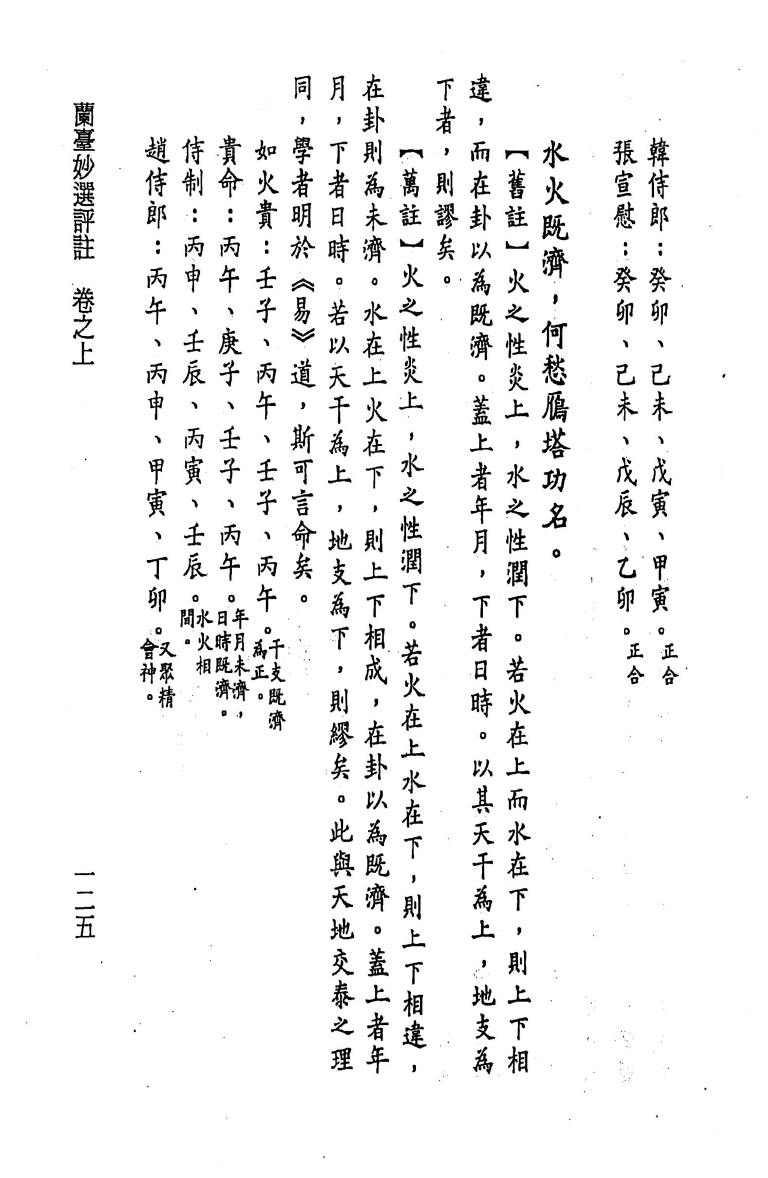 韓侍郎：癸卯、己未、戊寅、甲寅。正合
張宣慰：癸卯、己未、戊辰、乙卯。正合
水火既濟，何愁鴈塔功名。
【舊註】火之性炎上，水之性潤下。若火在上而水在下，則上下相
違，而在卦以為既濟。蓋上者年月，下者日時。以其天干為上，地支為
下者，則謬矣。
【萬註】火之性炎上，水之性潤下。若火在上水在下，則上下相違，
在卦則為未濟。水在上火在下，則上下相成，在卦以為既濟。蓋上者年
月，下者日時。若以天干為上，地支為下，則繆矣。此與天地交泰之理
同，學者明於《易》道，斯可言命矣。
如火貴：壬子、丙午、壬子、丙午。干支既濟為正。
貴命：丙午、庚子、壬子、丙午。年月未濟，日時既濟。
侍制：丙申、壬辰、丙寅、壬辰。水火相間。
趙侍郎：丙午、丙申、甲寅、丁卯。又聚精會神。
蘭臺妙選評註　卷之上
一二五